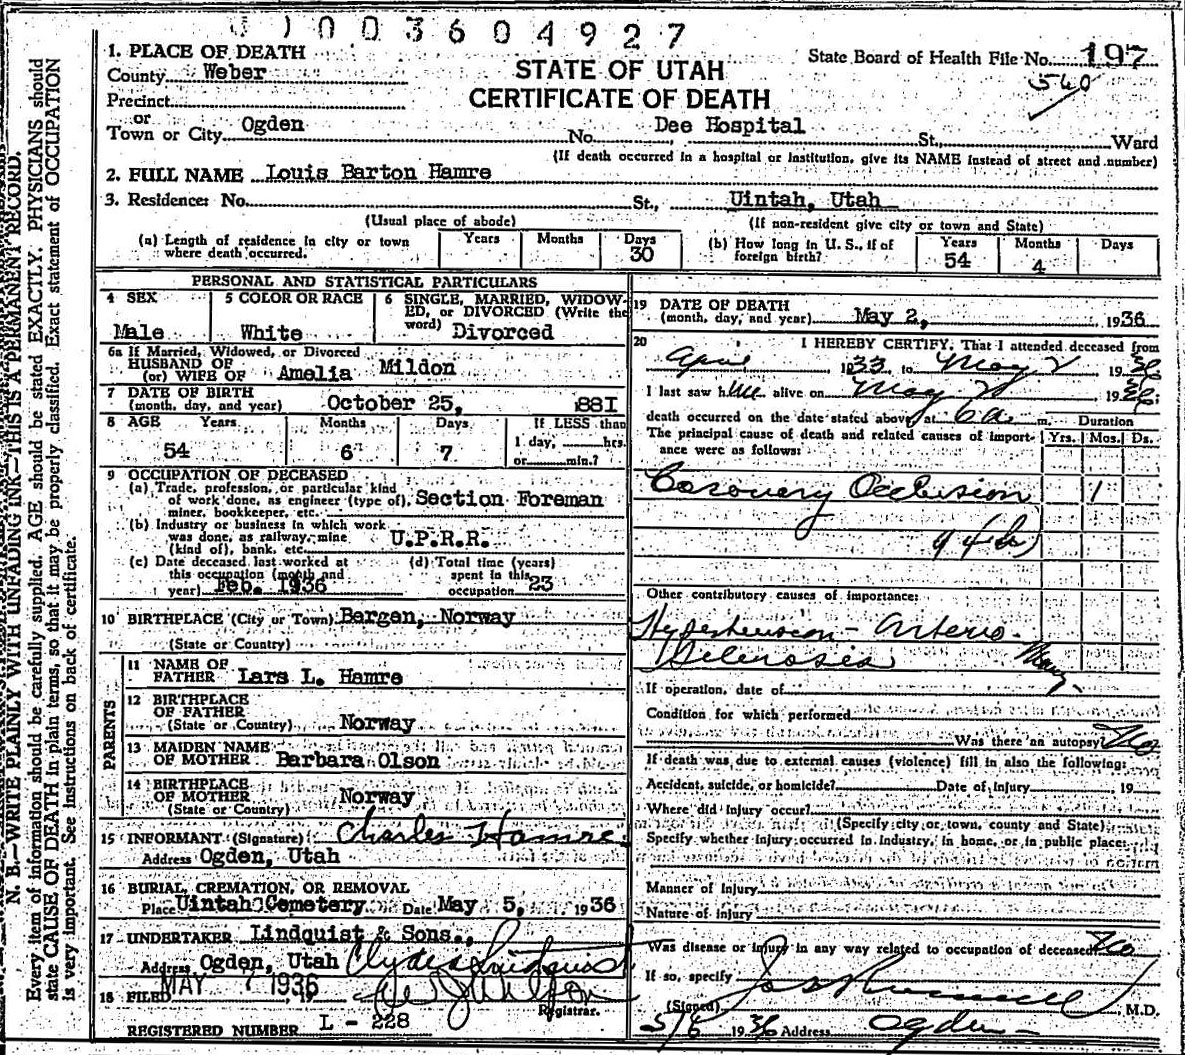 1003604927
1. PLACE OF DEATH
County Weber
STATE OF UTAH
CERTIFICATE OF DEATH
State Board of Health File No. 197
560
Precinct
or
Town or City Ogden No. Dee Hospital St., Ward
(If death occurred in a hospital or institution, give its NAME instead of street and number)
2. FULL NAME Louis Barton Hamre
3. Residence: No. St., Uintah, Utah
(Usual place of abode) (If non-resident give city or town and State)
(a) Length of residence in city or town where death occurred. Years Months Days 30
(b) How long in U. S., if of foreign birth? Years 54 Months 4 Days
PERSONAL AND STATISTICAL PARTICULARS
4 SEX Male
5 COLOR OR RACE White
6 SINGLE, MARRIED, WIDOW-
ED, or DIVORCED (Write the
word) Divorced
6a If Married, Widowed, or Divorced
HUSBAND OF
(or) WIFE OF Amelia Mildon
7 DATE OF BIRTH
(month, day, and year) October 25, 1881
8 AGE Years 54 Months 6 Days 7
If LESS than
1 day, hrs.
or min.?
9 OCCUPATION OF DECEASED
(a) Trade, profession, or particular kind
of work done, as engineer (type of), Section Foreman
miner, bookkeeper, etc.
(b) Industry or business in which work
was done, as railway, mine U.P.R.R.
(kind of), bank, etc.
(c) Date deceased last worked at
this occupation (month and
year) Feb. 1936
(d) Total time (years)
spent in this
occupation 23
10 BIRTHPLACE (City or Town) Bergen, Norway
(State or Country)
PARENTS
11 NAME OF
FATHER Lars L. Hamre
12 BIRTHPLACE
OF FATHER
(State or Country) Norway
13 MAIDEN NAME
OF MOTHER Barbara Olson
14 BIRTHPLACE
OF MOTHER Norway
(State or Country)
15 INFORMANT (Signature) Charles Hamre
Address Ogden, Utah
16 BURIAL, CREMATION, OR REMOVAL
Place Uintah Cemetery Date May 5, 1936
17 UNDERTAKER Lindquist & Sons.,
Address Ogden, Utah Clyde Lindquist
18 FILED MAY 7 1936, 19
Registrar.
REGISTERED NUMBER L - 228
19 DATE OF DEATH
(month, day, and year) May 2, 1936
20 I HEREBY CERTIFY, That I attended deceased from
April 1933 to May 2 1936
I last saw him alive on May 2 1936;
death occurred on the date stated above, at 6 a. m.
Duration
The principal cause of death and related causes of import-
ance were as follows:
Yrs. Mos. Ds.
Coronary Occlusion 1
94(b)
Other contributory causes of importance:
Hypertension - Arterio-
Sclerosis Many
If operation, date of
Condition for which performed
Was there an autopsy? No
If death was due to external causes (violence) fill in also the following:
Accident, suicide, or homicide? Date of injury , 19
Where did injury occur?
(Specify city or town, county and State)
Specify whether injury occurred in industry, in home, or in public place:
Manner of Injury
Nature of Injury
Was disease or injury in any way related to occupation of deceased? No
If so, specify
(Signed) Jos R Morrell, M.D.
5/6 1936 Address Ogden
N. B.—WRITE PLAINLY WITH UNFADING INK—THIS IS A PERMANENT RECORD.
Every item of information should be carefully supplied. AGE should be stated EXACTLY. PHYSICIANS should
state CAUSE OF DEATH in plain terms, so that it may be properly classified. Exact statement of OCCUPATION
is very important. See instructions on back of certificate.